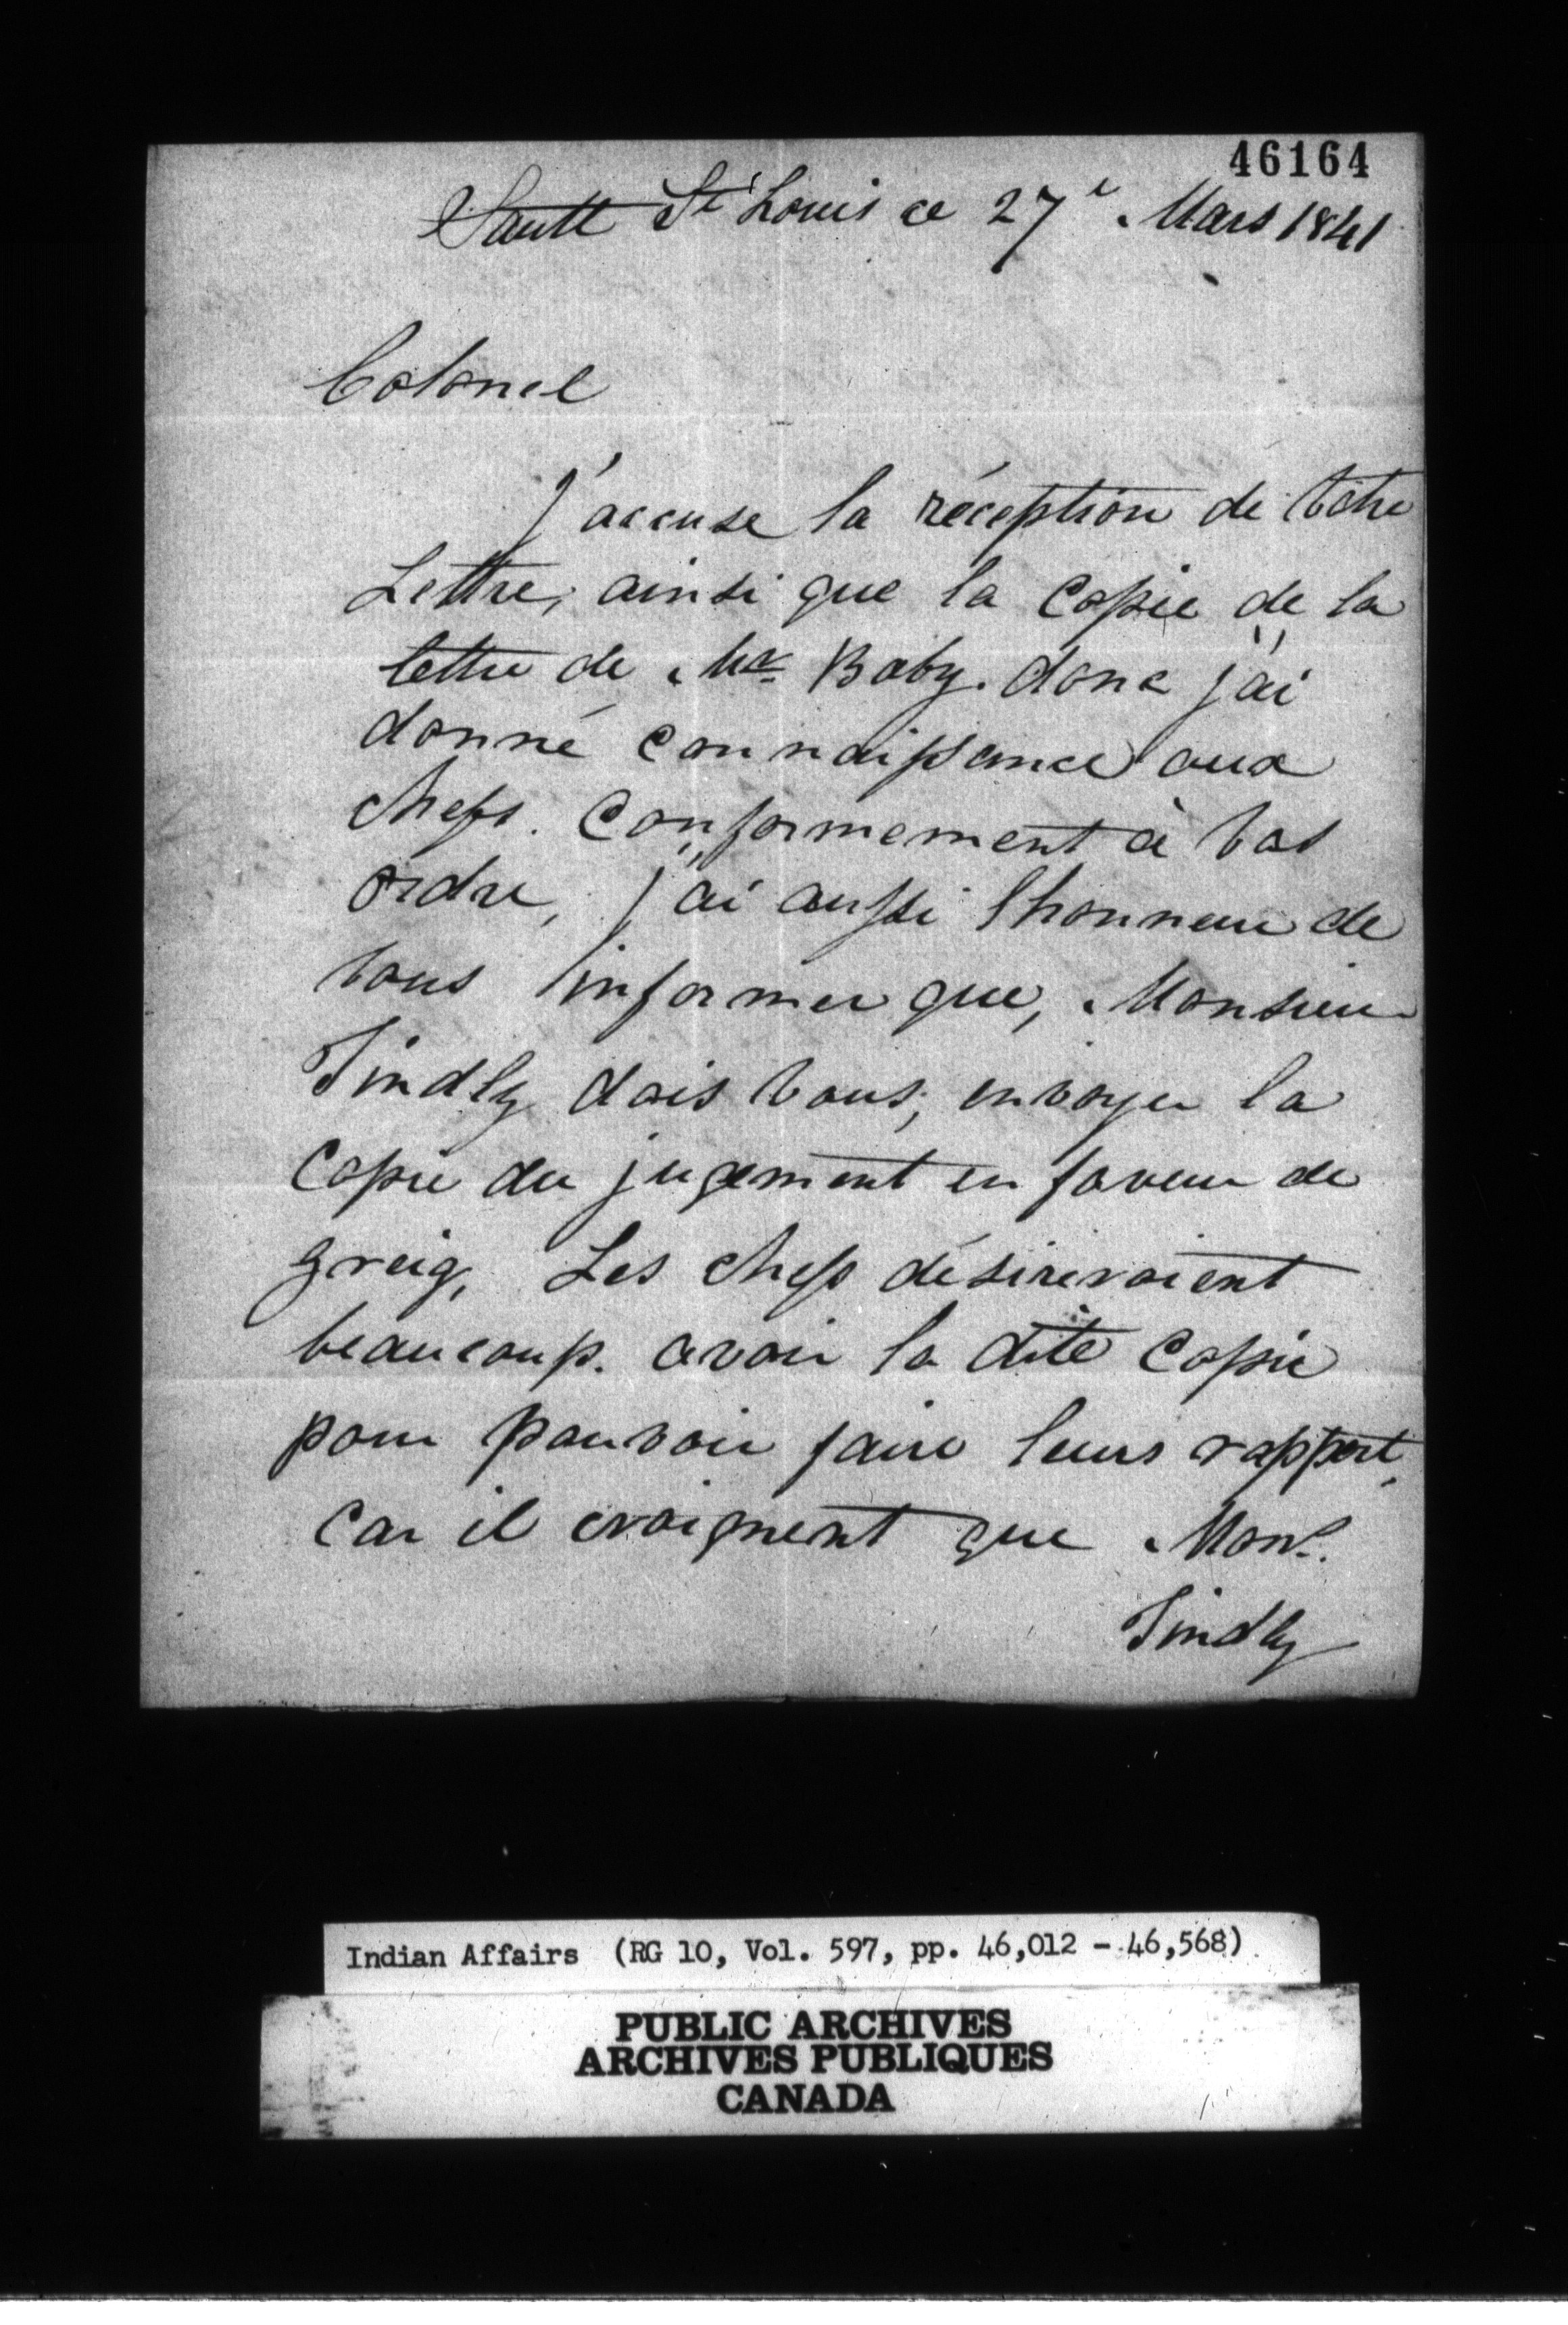 46164
Sault St Louis ce 27e Mars 1841
Colonel
J'accuse la réception de votre
Lettre, ainsi que la Copie de la
lettre de Mr Baby. donc j'ai
donné connaissance aux
chefs. Conformement à vos
ordre, j'ai aussi lhonneur de
vous informer que, Monsieur
Findly dois vous, envoyer la
Copie du jugement en faveur de
greig, Les chefs désireroient
beaucoup. avoir la dite Copie
pour pouvoir faire leurs rapport,
car il craignent que Mons.
Findly
Indian Affairs (RG 10, Vol. 597, pp. 46,012 - 46,568)
PUBLIC ARCHIVES
ARCHIVES PUBLIQUES
CANADA